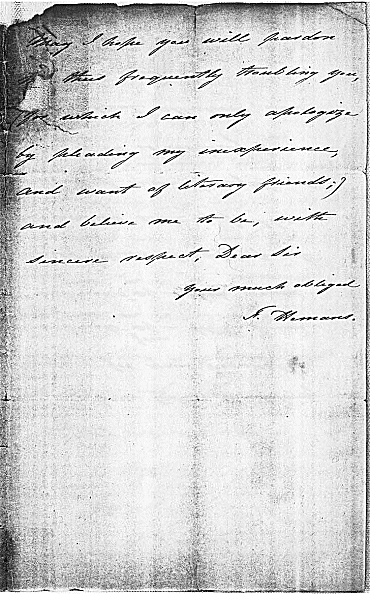 May I hope you will pardon
thus frequently troubling you,
for which I can only apologize
by pleading my inexperience,
and want of literary friends;)
and believe me to be, with
sincere respect, Dear Sir
your much obliged
F. Hemans.